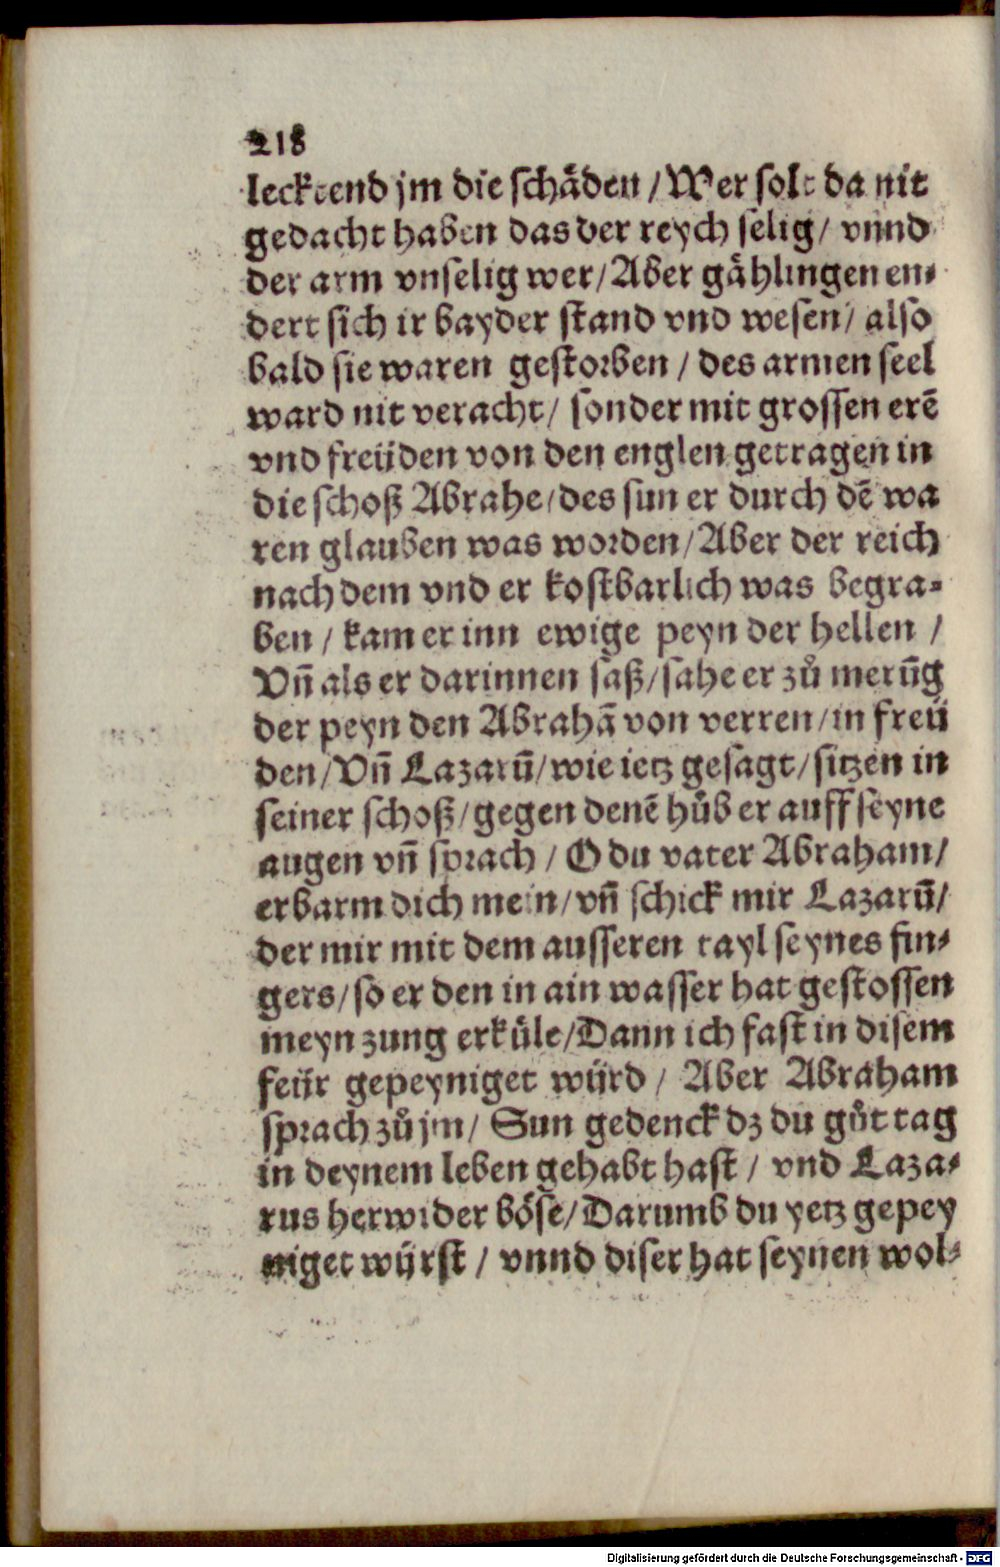 218
lecktend jm die schäden / Wer solt da nit
gedacht haben das der reych selig / vnnd
der arm vnselig wer / Aber gählingen en⸗
dert sich ir bayder stand vnd wesen / also
bald sie waren gestorben / des armen seel
ward nit veracht / sonder mit grossen erē
vnd freüden von den englen getragen in
die schoß Abrahe / des sun er durch dē wa
ren glauben was worden / Aber der reich
nach dem vnd er kostbarlich was begra⸗
ben / kam er inn ewige peyn der hellen /
Vn̄ als er darinnen saß / sahe er zů merūg
der peyn den Abrahā von verren / in freü
den / Vn̄ Lazarū / wie ietz gesagt / sitzen in
seiner schoß / gegen denē hůb er auff seyne
augen vn̄ sprach / O du vater Abraham /
erbarm dich mein / vn̄ schick mir Lazarū /
der mir mit dem ausseren tayl seynes fin⸗
gers / so er den in ain wasser hat gestossen
meyn zung erküle / Dann ich fast in disem
feür gepeyniget würd / Aber Abraham
sprach zů jm / Sun gedenck dz du gůt tag
in deynem leben gehabt hast / vnd Laza⸗
rus herwider böse / Darumb du yetz gepey
niget würst / vnnd diser hat seynen wol⸗
Digitalisierung gefördert durch die Deutsche Forschungsgemeinschaft - DFG